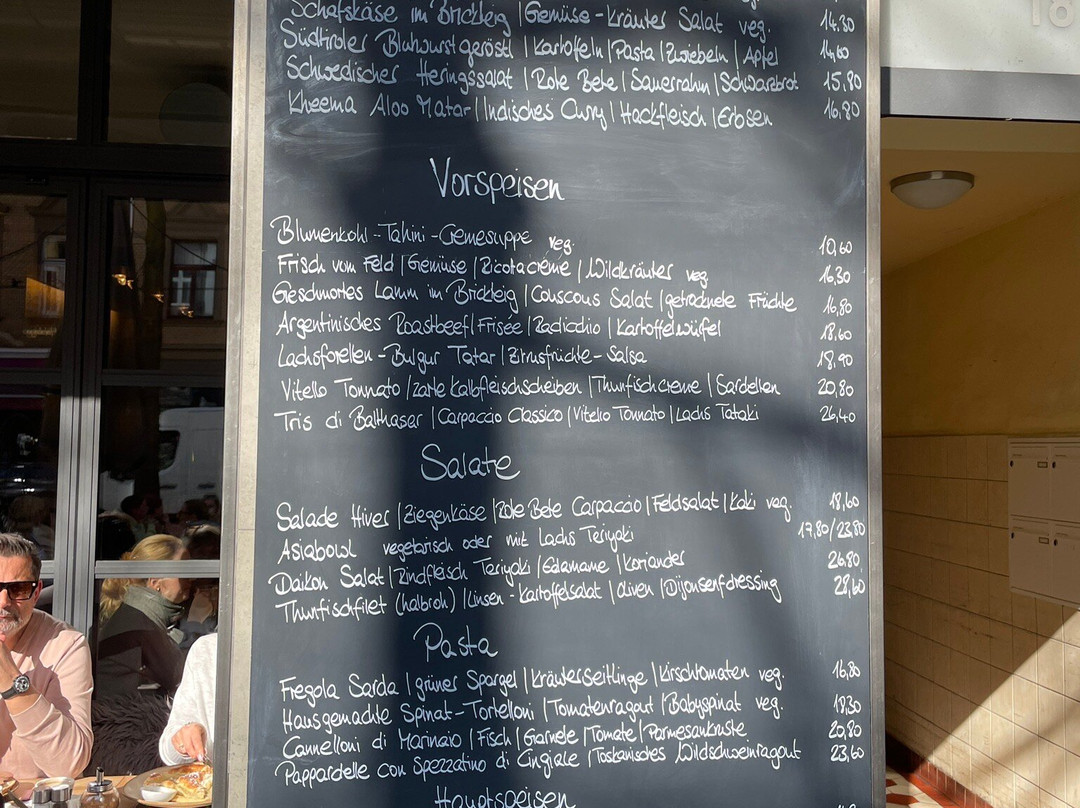 18
Schafskäse im Brickteig | Gemüse-Kräuter Salat veg. 14,30
Südtiroler Blutwurstgeröstl | Kartoffeln | Pasta | Zwiebeln | Apfel 14,60
Schwedischer Heringssalat | Rote Bete | Sauerrahm | Schwarzbrot 15,80
Kheema Aloo Matar | Indisches Curry | Hackfleisch | Erbsen 16,80
Vorspeisen
Blumenkohl-Tahini-Cremesuppe veg. 10,60
Frisch vom Feld | Gemüse | Ricotacreme | Wildkräuter veg 16,30
Geschmortes Lamm im Brickteig | Couscous Salat | getrocknete Früchte 16,80
Argentinisches Roastbeef | Frisee | Radicchio | Kartoffelwürfel 18,60
Lachsforellen-Bulgur Tatar | Zitrusfrüchte-Salsa 18,90
Vitello Tonnato | zarte Kalbfleischscheiben | Thunfischcreme | Sardellen 20,80
Tris di Balthasar | Carpaccio Classico | Vitello Tonnato | Lachs Tataki 26,40
Salate
Salade Hiver | Ziegenkäse | Rote Bete Carpaccio | Feldsalat | Kaki veg. 18,60
Asiabowl vegetarisch oder mit Lachs Teriyaki 17,80/23,80
Daikon Salat | Rindfleisch Teriyaki | Edamame | Koriander 26,80
Thunfischfilet (halbroh) | Linsen-Kartoffelsalat | Oliven | Dijonsenfdressing 28,60
Pasta
Fregola Sarda | grüner Spargel | Kräuterseitlinge | Kirschtomaten veg. 16,80
Hausgemachte Spinat-Tortelloni | Tomatenragout | Babyspinat veg. 18,30
Cannelloni di Marinaio | Fisch | Garnele | Tomate | Parmesankruste 20,80
Pappardelle con Spezzatino di Cingiale | Toskanisches Wildschweinragout 23,60
Hauptspeisen